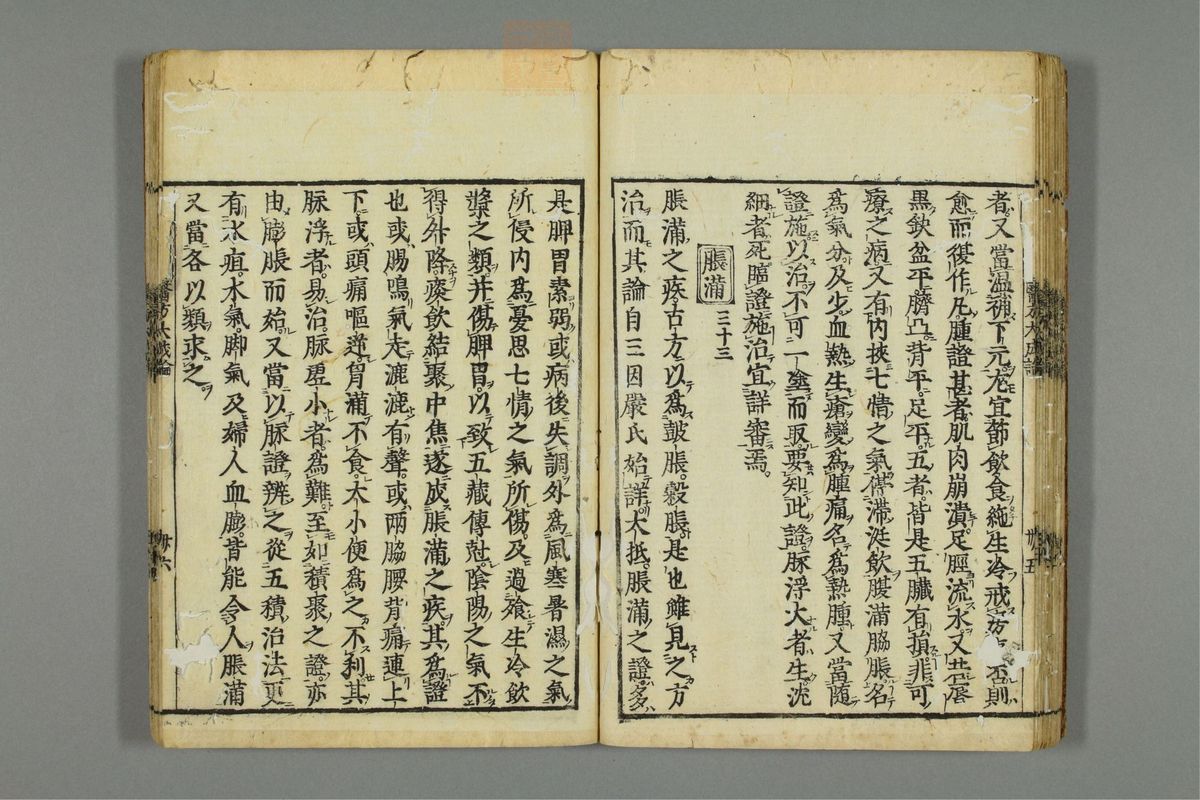 者又當溫補下元尤宜節飲食絁生冷戒 否則
愈而復作凡腫證甚者肌肉崩潰足脛流水又 唇
黒缺盆平臍凸背平足平五者皆是五臟有損非可
療之病又有內挾七情之氣停滯涎飲腹滿脇脹名
爲氣分及少血熱生瘡變爲腫痛名爲熱腫又當隨
證施以治不可一塗而取要知此證脉浮大者生沈
細者死臨證施治宜詳審焉
脹滿 三十三
脹滿之疾古方以爲皷脹穀脹是也雖見之方
治而其論自三因嚴氏始詳大抵脹滿之證多
是脾胃素弱或病後失調外爲風寒暑濕之氣
所侵内爲憂思七情之氣所傷及過飡生冷飲
漿之類并傷脾胃以致五藏傳尅陰陽之氣不
得升降痰飲結聚中焦遂成脹滿之疾其爲證
也或腸鳴氣走漉漉有聲或兩脇腰背痛連上
下或頭痛嘔逆胃滿不食大小便爲之不利其
脉浮者易治脉虛小者爲難至如積聚之證亦
由膨脹而始又當以脉證辨之從五積治法更
有水疸水氣脚氣及婦人血膨昔能令人脹滿
又當各以類求之
醫方大成論
卅五
卅六